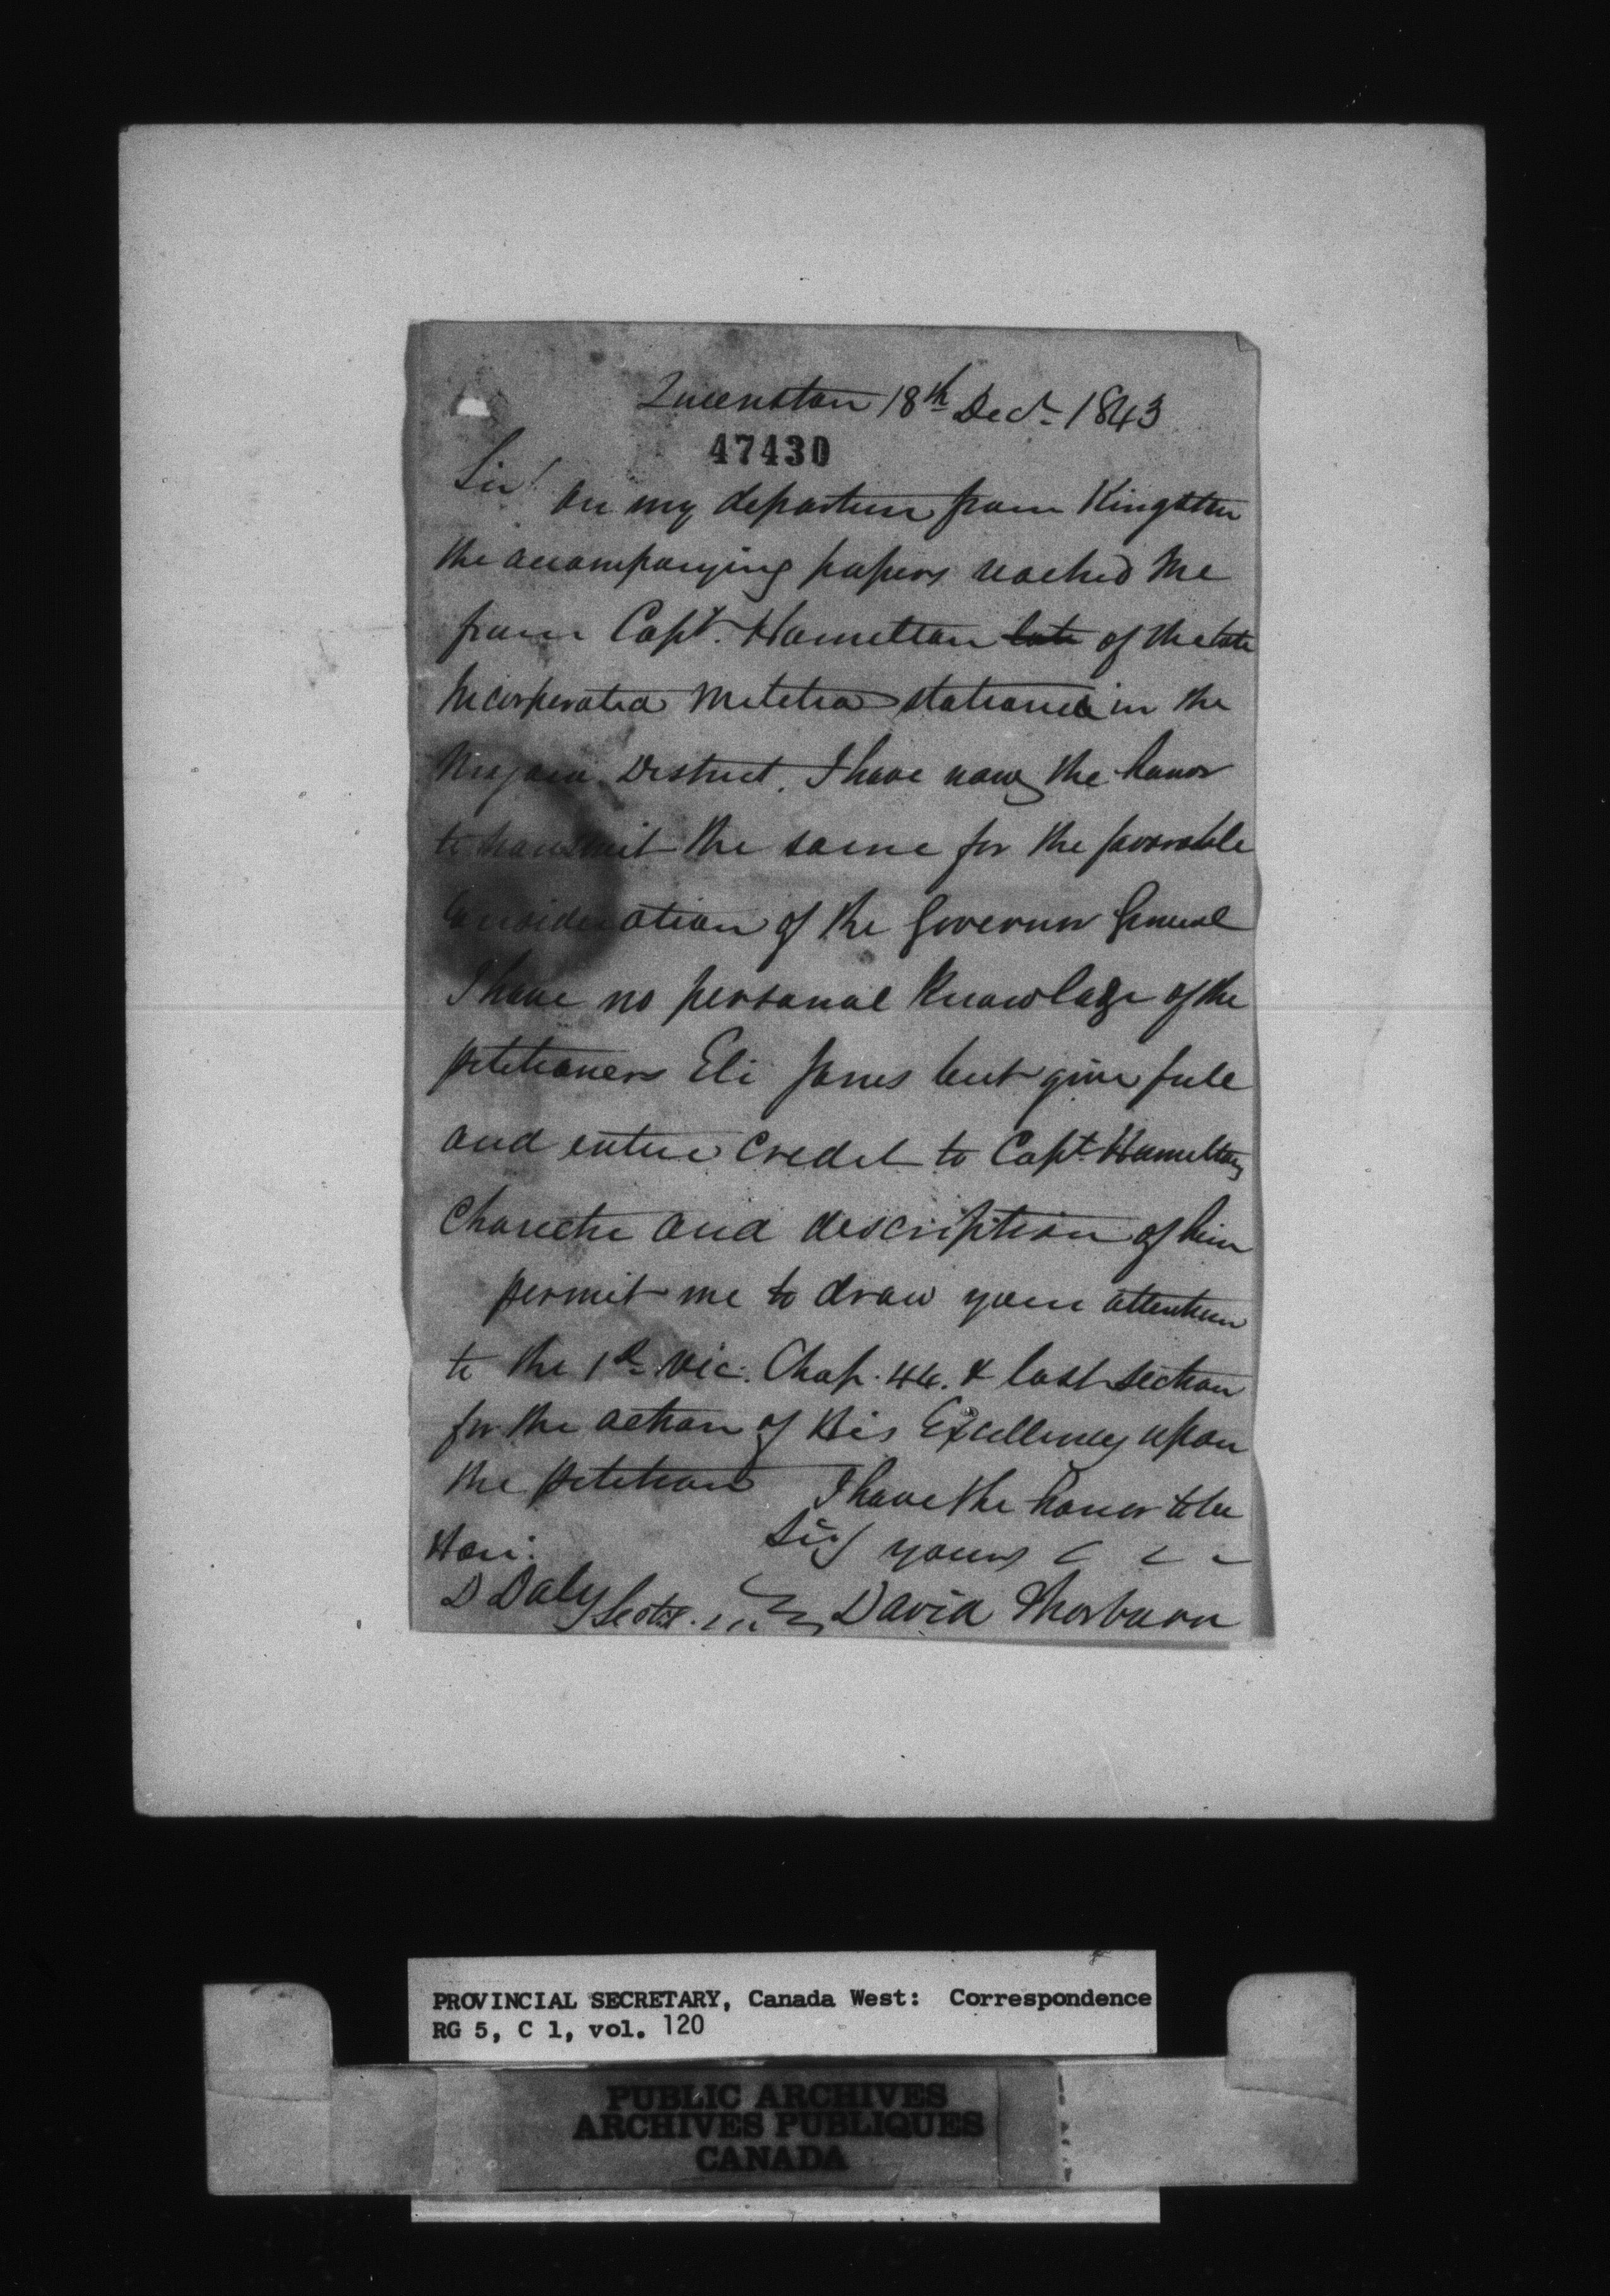 Queenston 18th Decr 1843
47430
Sir On my departure from Kingston
the accompanying papers reached me
from Capt. Hamilton late of the late
Incorporated Militia stationed in the
Niagara District. I have now the honor
to transmit the same for the favorable
Consideration of the Governor General
I have no personal knowladge of the
petitioners Eli Jones but give full
and entire Credit to Capt Hamiltons
Charecter and description of him
permit me to draw your attention
to the 1st Vic. Chap. 44. & last section
for the action of His Excellency upon
the petition I have the honor to be
Sir yours
Hon:
D Daly David Thorburn
PROVINCIAL SECRETARY, Canada West: Correspondence
RG 5, C 1, vol. 120
PUBLIC ARCHIVES
ARCHIVES PUBLIQUES
CANADA